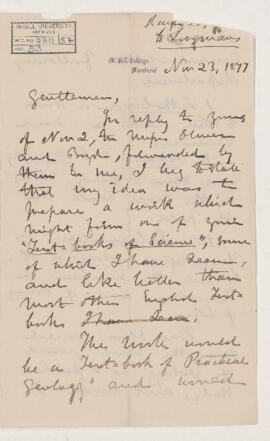 McGILL UNIVERSITY
ARCHIVES
ACC. NO. 2211/57
REF. 53
to Longmans
McGill College,
Montreal
Nov 23, 1877
Gentlemen,
In reply to yours
of Nov 2, to Messrs Oliver
and Boyd, forwarded by
them to me, I beg to state
that my idea was to
prepare a work which
might form one of your
"Text-books of Science", some
of which I have seen,
and like better than
most other English Text-
books I have seen.
The work would
be a Text-book of Practical
Geology" and would